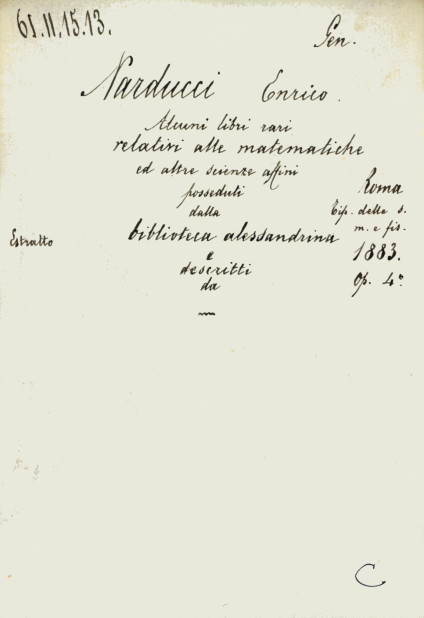 61.11.15.13.
Gen.
Narducci Enrico.
Alcuni libri rari
relativi alle matematiche
ed altre scienze affini
posseduti
Roma
dalla
Tip. delle s.
m. e fis.
Estratto
biblioteca alessandrina
1883.
e
descritti
da
Op. 4°
C